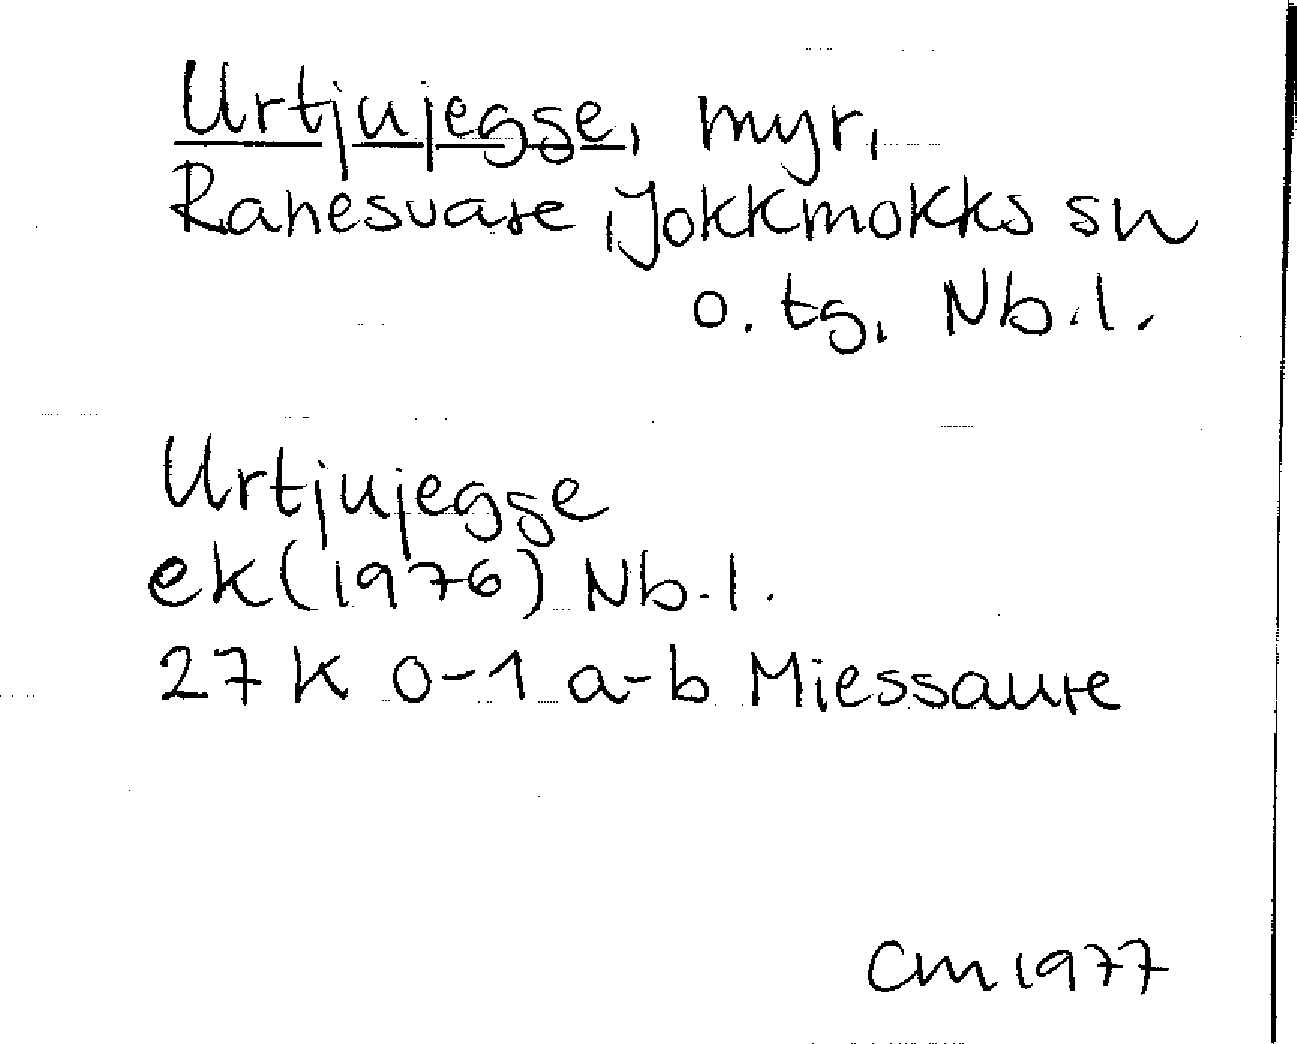 Urtjujegge, myr,
Ranesvare, Jokkmokks sn
o. tg, Nb.l.
Urtjujegge
ek (1976) Nb.l.
27 K 0-1 a-b Miessaure
CM 1977